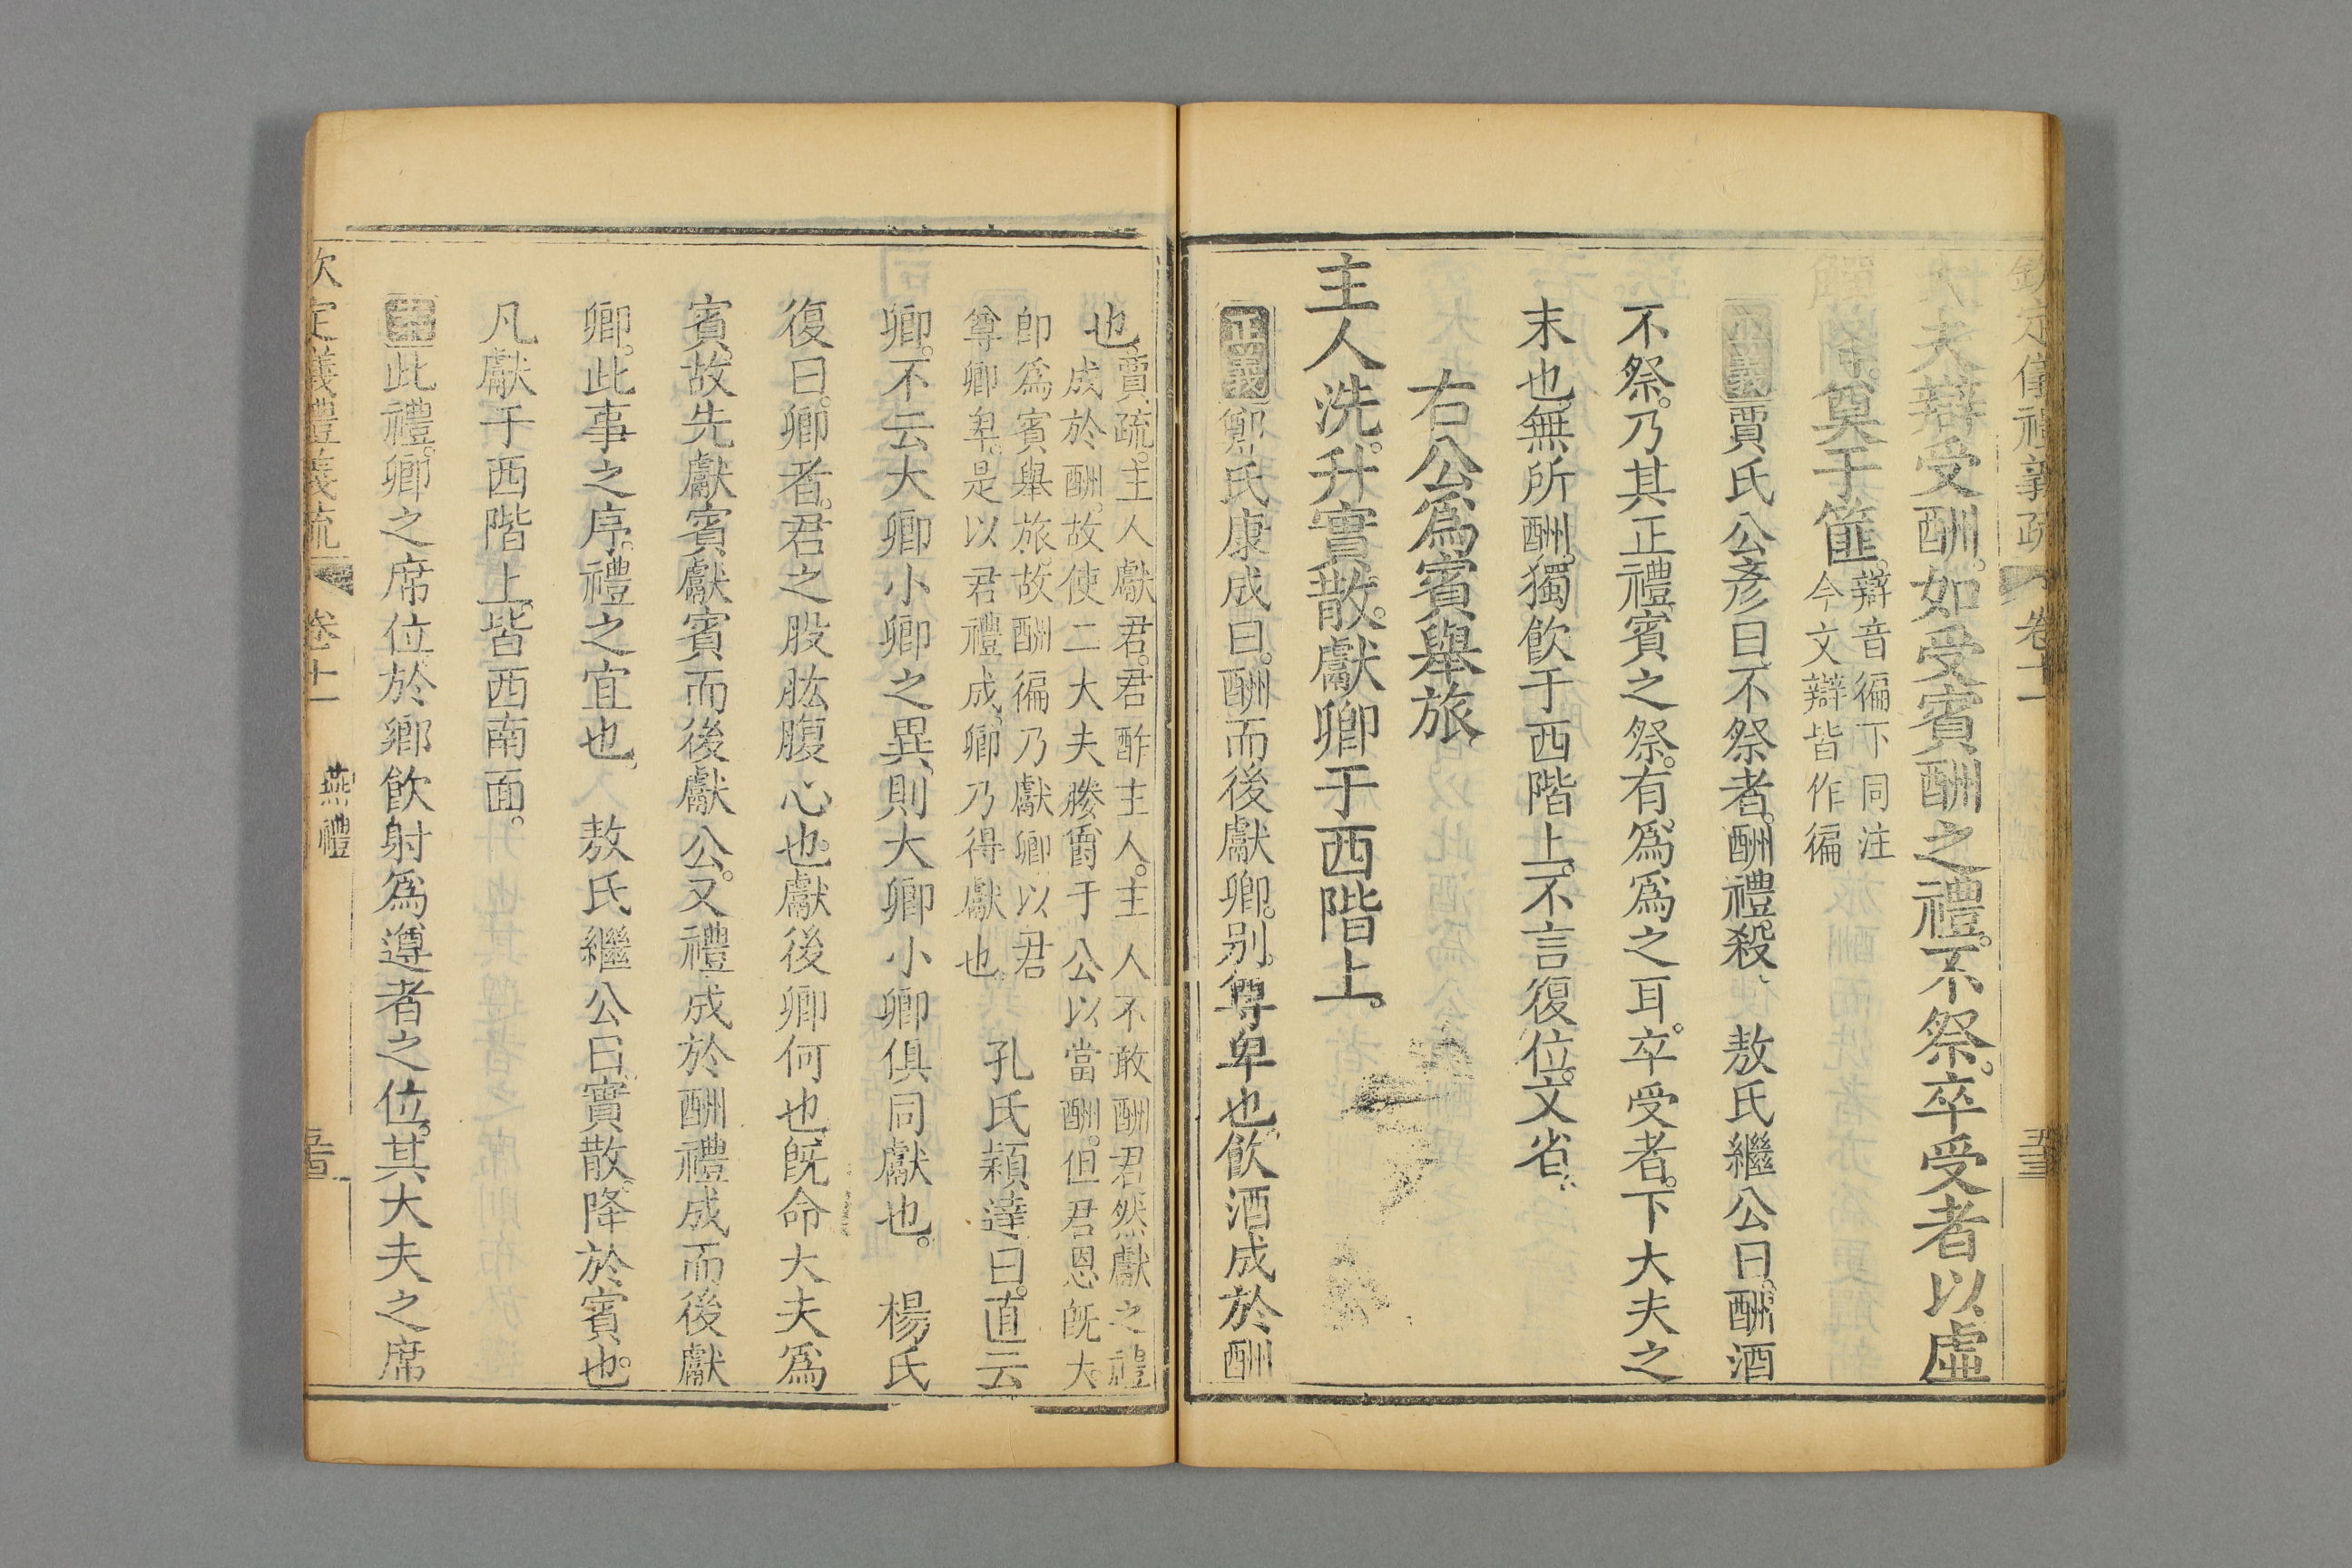 欽定儀禮義疏 卷十一 五三
大夫辯受酬。如受賓酬之禮。不祭。卒受者以虛
觶降。奠于篚。辯音徧下同注
今文辯皆作徧
正義賈氏公彥曰。不祭者。酬禮殺、 敖氏繼公曰。酬酒
不祭。乃其正禮。賓之祭。有爲爲之耳。卒受者。下大夫之
末也。無所酬。獨飲于西階上。不言復位。文省。
右公爲賓舉旅
主人洗。升實散。獻卿于西階上。
正義鄭氏康成曰。酬而後獻卿。別尊卑也。飮酒成於酬
也。賈疏。主人獻君。君酢主人。主人不敢酬君。然獻之禮
成於酬。故使二大夫媵爵于公以當酬。但君恩旣大。
卽爲賓舉旅。故酬徧乃獻卿以君
尊卿卑。是以君禮成。卿乃得獻也。 孔氏穎達曰。直云
卿。不云大卿小卿之異。則大卿小卿俱同獻也。 楊氏
復曰。卿者。君之股肱腹心也。獻後卿何也。旣命大夫爲
賓。故先獻賓。獻賓而後獻公。又禮成於酬。禮成而後獻
卿。此事之序。禮之宜也。 敖氏繼公曰。實散。降於賓也。
凡獻于西階上。皆西南面。
此禮。卿之席位於鄉飲射爲遵者之位。其大夫之席
欽定儀禮義疏 卷十一 燕禮